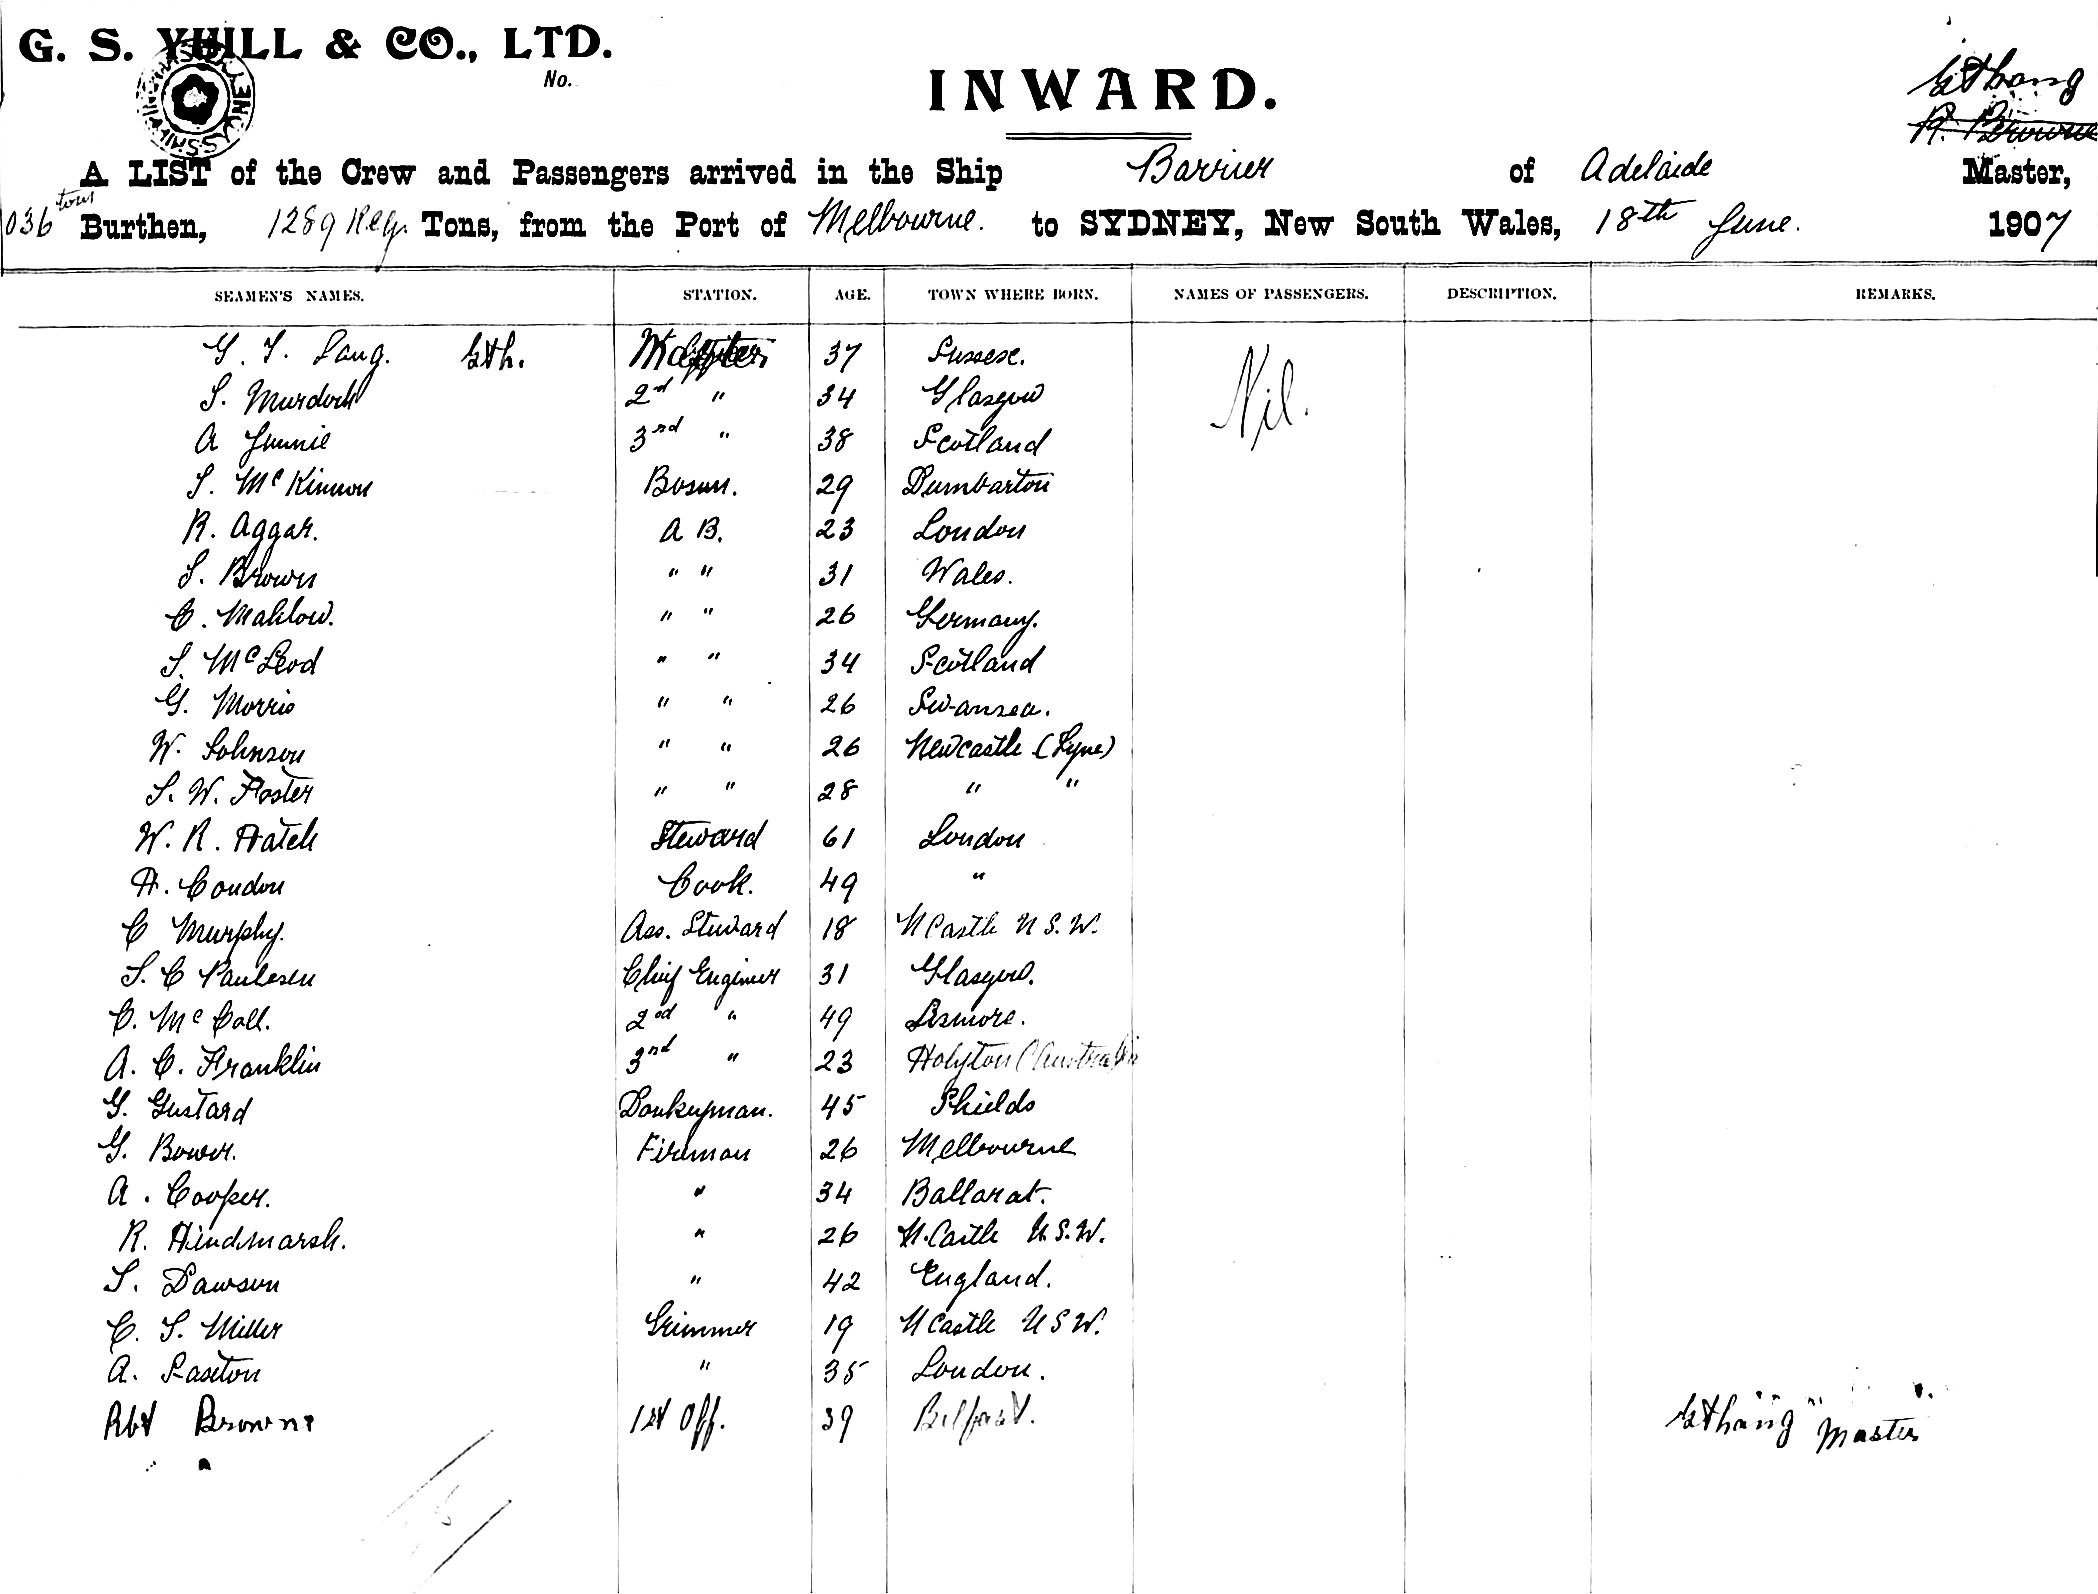 G. S. YUILL & CO., LTD.
No.
INWARD.
R. Browne
A LIST of the Crew and Passengers arrived in the Ship Barrier of Adelaide Master,
036 tons Burthen, 1289 Reg. Tons, from the Port of Melbourne. to SYDNEY, New South Wales, 18th June. 1907
SEAMEN'S NAMES. STATION. AGE. TOWN WHERE BORN. NAMES OF PASSENGERS. DESCRIPTION. REMARKS.
G. T. Lang. Master 37 Sussex. Nil.
J. Murdoch 2nd " 34 Glasgow
A 3rd " 38 Scotland
J. McKinnon Bosun. 29 Dumbarton
R. Aggar. A B. 23 London
J. Brown " " 31 Wales.
C. Mahlow. " " 26 Germany.
J. McLeod " " 34 Scotland
G. Morris " " 26 Swansea.
W. Johnson " " 26 Newcastle (Tyne)
J. W. Foster " " 28 " "
W. R. Hatch Steward 61 London
H. Condon Cook. 49 "
C Murphy. Ass. Steward 18 N Castle N S. W.
J. C Paulesen Chief Engineer 31 Glasgow.
C. McColl. 2nd " 49 Lismore.
A. C. Franklin 3rd " 23 (Australia
G. Gustard Donkeyman. 45 Shields
G. Bower. Fireman 26 Melbourne
A. Cooper. " 34 Ballarat.
R. Hindmarsh. " 26 N. Castle N. S. W.
J. Dawson " 42 England.
C. J. Miller Trimmer 19 N Castle N S W.
A. Saxton " 35 London.
Robt Browne 1st Off. 39 Belfast.
Master